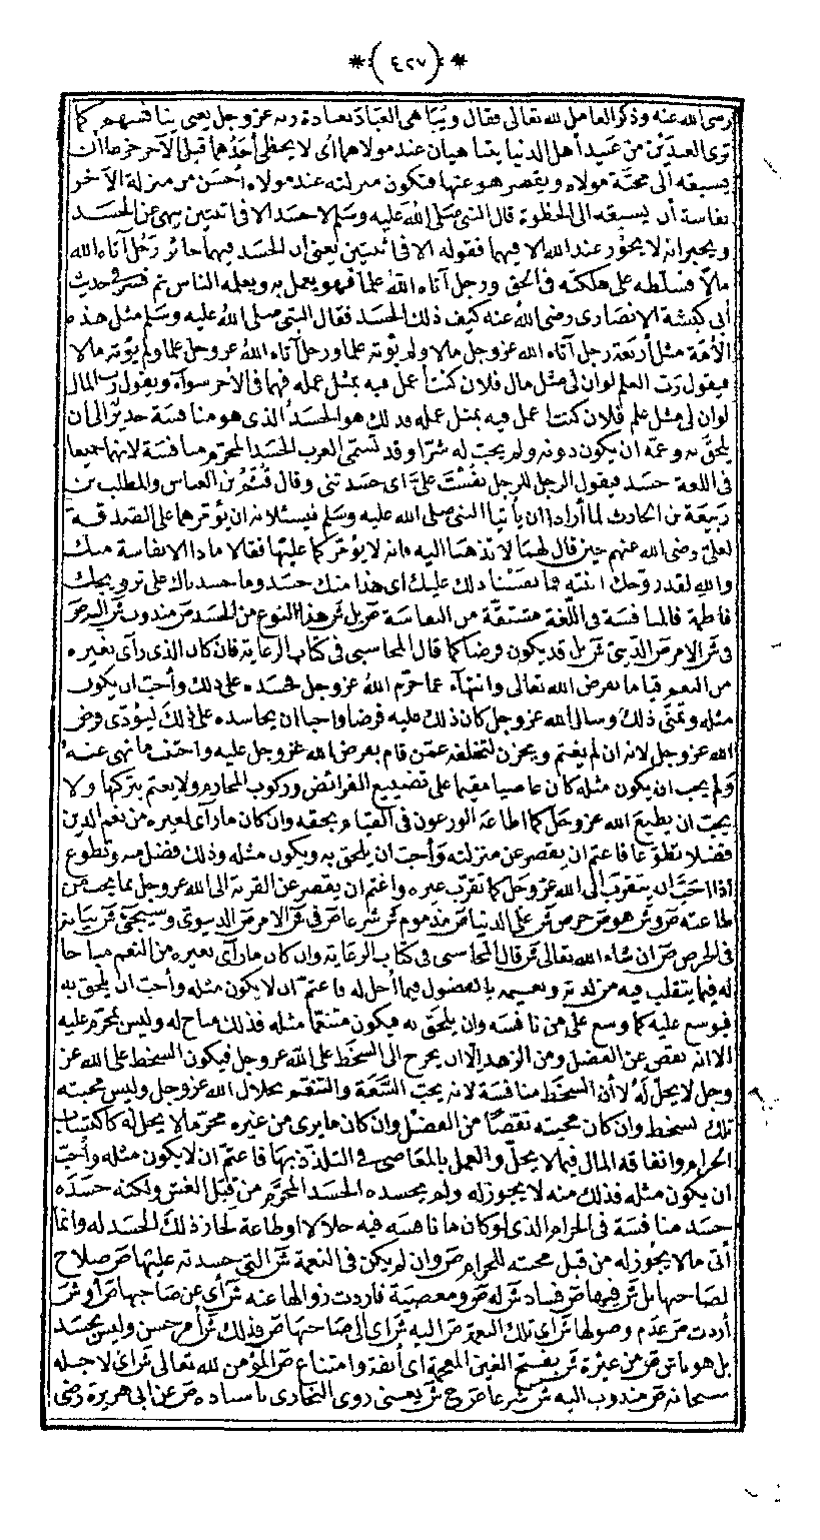 *(٤٢٧)*
رضى الله عنه وذكر العامل لله تعالى فقال ويتباهى العباد بعبادة ربه عز وجل يعنى ينافسهم كما
ترى العبدين من عبيد أهل الدنيا يتباهيان عند مولاهما أى لا يحظى أحدهما قبل الآخر حرصا أن
يسبقه الى محبة مولاه ويقصر هو عنها فتكون منزلته عند مولاه أحسن من منزلة الآخر
نفاسة أن يسبقه الى الحظوة قال النبى صلى الله عليه وسلم لا حسد الا فى اثنتين ينهى عن الحسد
ويخبر انه لا يجوز عند الله الا فيهما فقوله الا فى اثنتين يعنى أن الحسد فيهما جائز رجل آتاه الله
مالا فسلطه على هلكته فى الحق ورجل آتاه الله علما فهو يعمل به ويعلمه الناس ثم فسر فى حديث
أبى كبشة الانصارى رضى الله عنه كيف ذلك الحسد فقال النبى صلى الله عليه وسلم مثل هذه
الأمة مثل أربعة رجل آتاه الله عز وجل مالا ولم يؤته علما ورجل آتاه الله عز وجل علما ولم يؤته مالا
فيقول رب العلم لو ان لى مثل مال فلان كنت أعمل فيه بمثل عمله فهما فى الأجر سواء ويقول رب المال
لو ان لى مثل علم فلان كنت أعمل فيه بمثل عمله فذلك هو الحسد الذى هو منافسة حذرا الى ان
يلحق به وغمه ان يكون دونه ولم يحب له شرا وقد تسمى العرب الحسد المحرم منافسة لانها جميعا
فى اللغة حسد فيقول الرجل للرجل نفست على أى حسدتنى وقال قثم بن العباس والمطلب بن
ربيعة بن الحارث لما أرادا ان يأتيا النبى صلى الله عليه وسلم فيسئلانه ان يؤمرهما على الصدقة
لعلى رضى الله عنهم حين قال لهما لا تذهبا اليه فانه لا يؤمركما عليها فقالا ما ذا الا نفاسة منك
والله لقد زوجك ابنته فما نفسنا ذلك عليك أى هذا منك حسد وما حسدناك على تزويجك
فاطمة فالمنافسة فى اللغة مشتقة من النفاسة ص بل ش هذا النوع من الحسد ص مندوب ش اليه ص
فى ش الامر ص الدينى ش بل قد يكون فرضا كما قال المحاسبى فى كتاب الرعاية فان كان الذى رأى بغيره
من النعم قياما بفرض الله تعالى وانتهاء عما حرم الله عز وجل فحسده على ذلك وأحب ان يكون
مثله وتمنى ذلك وسأل الله عز وجل كان ذلك عليه فرضا واجبا ان يحاسده على ذلك ليؤدى فرض
الله عز وجل لانه ان لم يغتم ويحزن لتخلفه عمن قام بفرض الله عز وجل عليه واجتنب ما نهى عنه
ولم يحب ان يكون مثله كان عاصيا مقيما على تضييع الفرائض وركوب المحارم ولا يغتم بتركها ولا
يحب ان يطيع الله عز وجل كما اطاعه الورعون فى القيام بحقه وان كان ما رأى لغيره من نعم الدين
فضلا تطوعا فاغتم ان يقصر عن منزلته وأحب ان يلحق به ويكون مثله وذلك فضل منه وتطوع
اذا احب ان يتقرب الى الله عز وجل كما تقرب غيره واغتم ان يقصر عن القربة الى الله عز وجل بما يحب من
طاعته ص و ش هو ص حرص ش على الدنيا ص مذموم ش شرعا ص فى ش الامر ص الدنيوى وسيجئ ش بيانه
فى الحرص ص ان شاء الله تعالى ش قال المحاسبى فى كتاب الرعاية وان كان ما رأى بغيره من النعم مباحا
له فيما يتقلب فيه من لذته ونعيمه بالفضول فيما أحل له فاغتم ان لا يكون مثله وأحب ان يلحق به
فيوسع عليه كما وسع على من نافسه وان يلحق به فيكون متنعما مثله فذلك مباح له وليس بمحرم عليه
الا انه نقص عن الفضل ومن الزهد الا ان يخرج الى السخط على الله عز وجل فيكون السخط على الله عز
وجل لا يحل له لا أن السخط منافسة لانه يحب السعة والتنعم بحلال الله عز وجل وليس محبته
تلك لسخط وان كان محبته نقصا من الفضل وان كان ما يرى من غيره محرما لا يحل له كاكتساب
الحرام وانفاقه المال فيما لا يحل والعمل بالمعاصى فى التلذذ بها فاغتم ان لا يكون مثله وأحب
ان يكون مثله فذلك منه لا يجوز له ولم يحسده الحسد المحرم من قبل الغش ولكنه حسده
حسد منافسة فى الحرام الذى لو كان ما نافسه فيه حلالا او طاعة لجاز ذلك الحسد له وانما
أتى ما لا يجوز له من قبل محبته للحرام ص وان لم يكن فى النعمة ش التى حسدته عليها ص صلاح
لصاحبها بل ش فيها ص فساد ش له ص ومعصية فاردت زوالها عنه ش أى عن صاحبها ص أو ش
أردت ص عدم وصولها ش أى تلك النعمة ص اليه ش أى الى صاحبها ص فذلك ش أمر حسن وليس بحسد
بل هو ناش ص من غيرة ش بفتح الغين المعجمة أى أنفة وامتناع ص المؤمن لله تعالى ش أى لاجله
سبحانه ص مندوب اليه ش شرعا ص خ ش يعنى روى البخارى باسناده ص عن ابى هريرة رضى